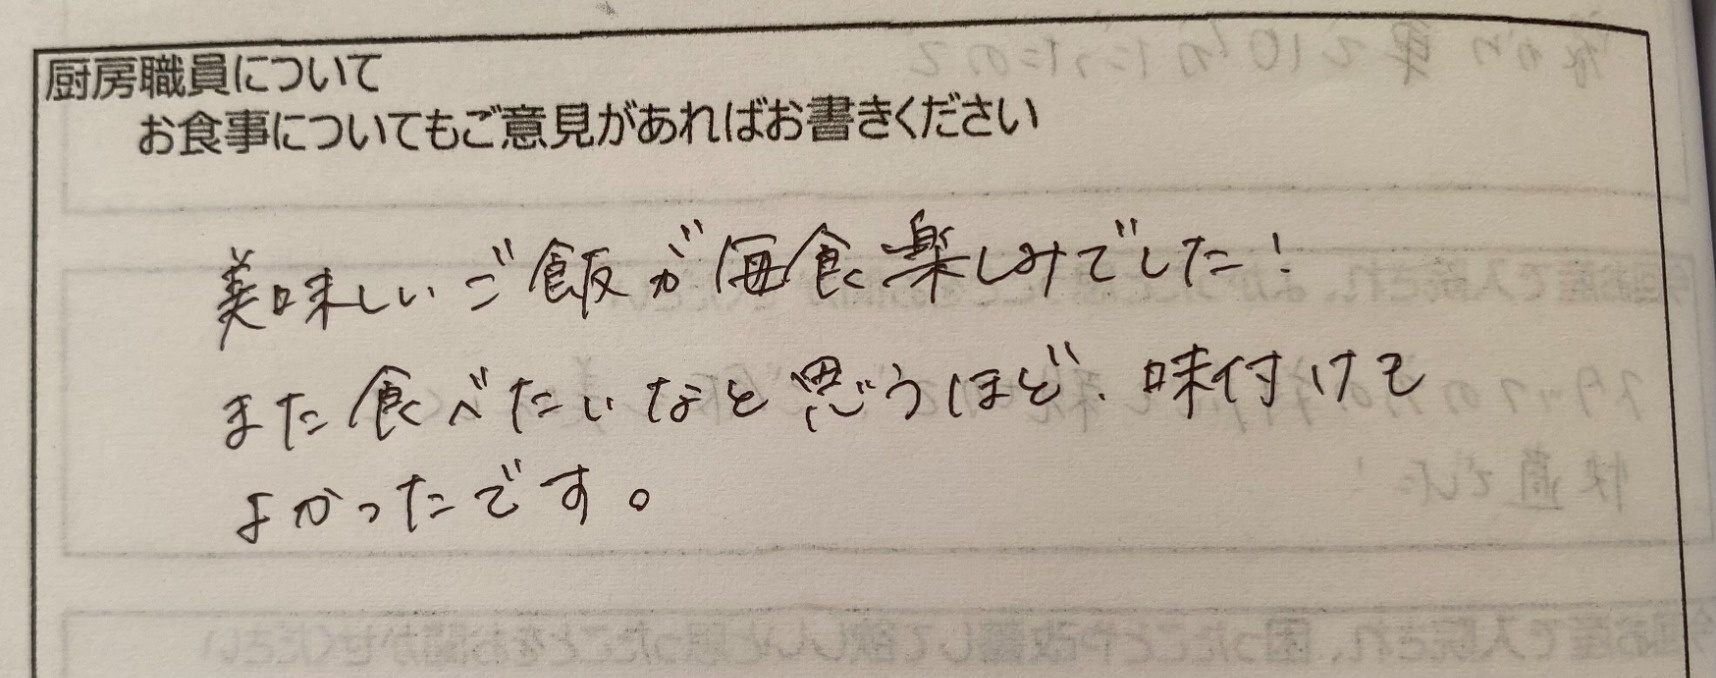 厨房職員について
お食事についてもご意見があればお書きください
美味しいご飯が毎食楽しみでした!
また食べたいなと思うほど、味付けも
よかったです。